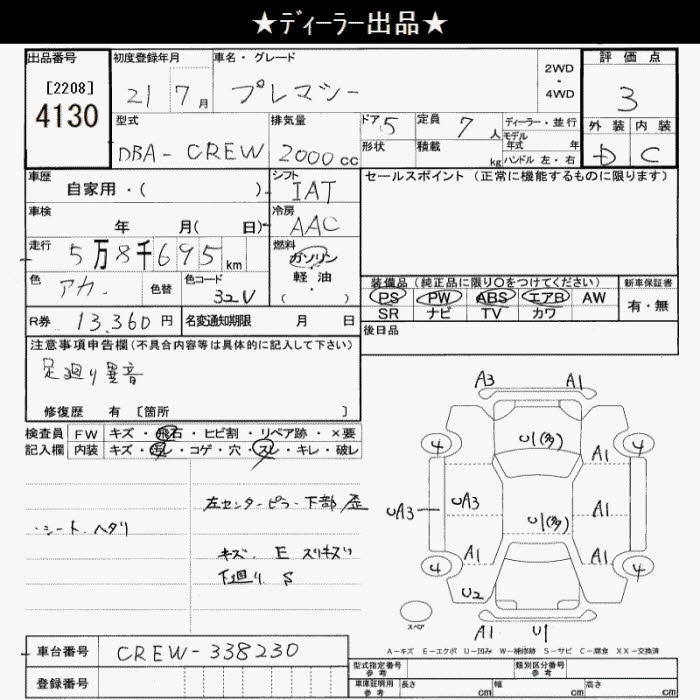 ★ディーラー出品★
出品番号
[2208]
4130
初度登録年月
21 7月
車名・グレード
プレマシー
2WD
・
4WD
評価点
3
型式
DBA-CREW
排気量
2000cc
ドア 5
定員 7人
ディーラー・並行
形状
積載 kg
モデル年式 年
ハンドル 左・右
外装 内装
D C
車歴
自家用・( )
シフト
IAT
セールスポイント (正常に機能するものに限ります)
車検
年 月( 日)
冷房
AAC
走行
5万8千695km
燃料
ガソリン
軽・油
( ・ )
色
アカ
色替
色コード
32V
装備品(純正品に限り○をつけてください)
新車保証書
PS PW ABS エアB AW
有・無
SR ナビ TV カワ
R券 13,360円
名変通知期限 月 日
後日品
注意事項申告欄(不具合内容等は具体的に記入して下さい)
足廻り異音
修復歴 有 [箇所 ]
検査員 FW キズ・飛石・ヒビ割・リペア跡・×要
記入欄 内装 キズ・汚レ・コゲ・穴・スレ・キレ・破レ
左センターピラー下部歪
・シートヘタリ
キズ、E スリキズ
下廻り S
A3 A1
4 U1(多) 4
A1
UA3 UA3 A1
U1(多)
A1 A1
4 4
U2
スペア
A1 U1
A-キズ E-エクボ U-凹み W-補修跡 S-サビ C-腐食 XX-交換済
車台番号 CREW-338230
登録番号
型式指定番号
参考
類別区分番号
参考
車庫証明用
参考
長さ cm 幅 cm 高さ cm